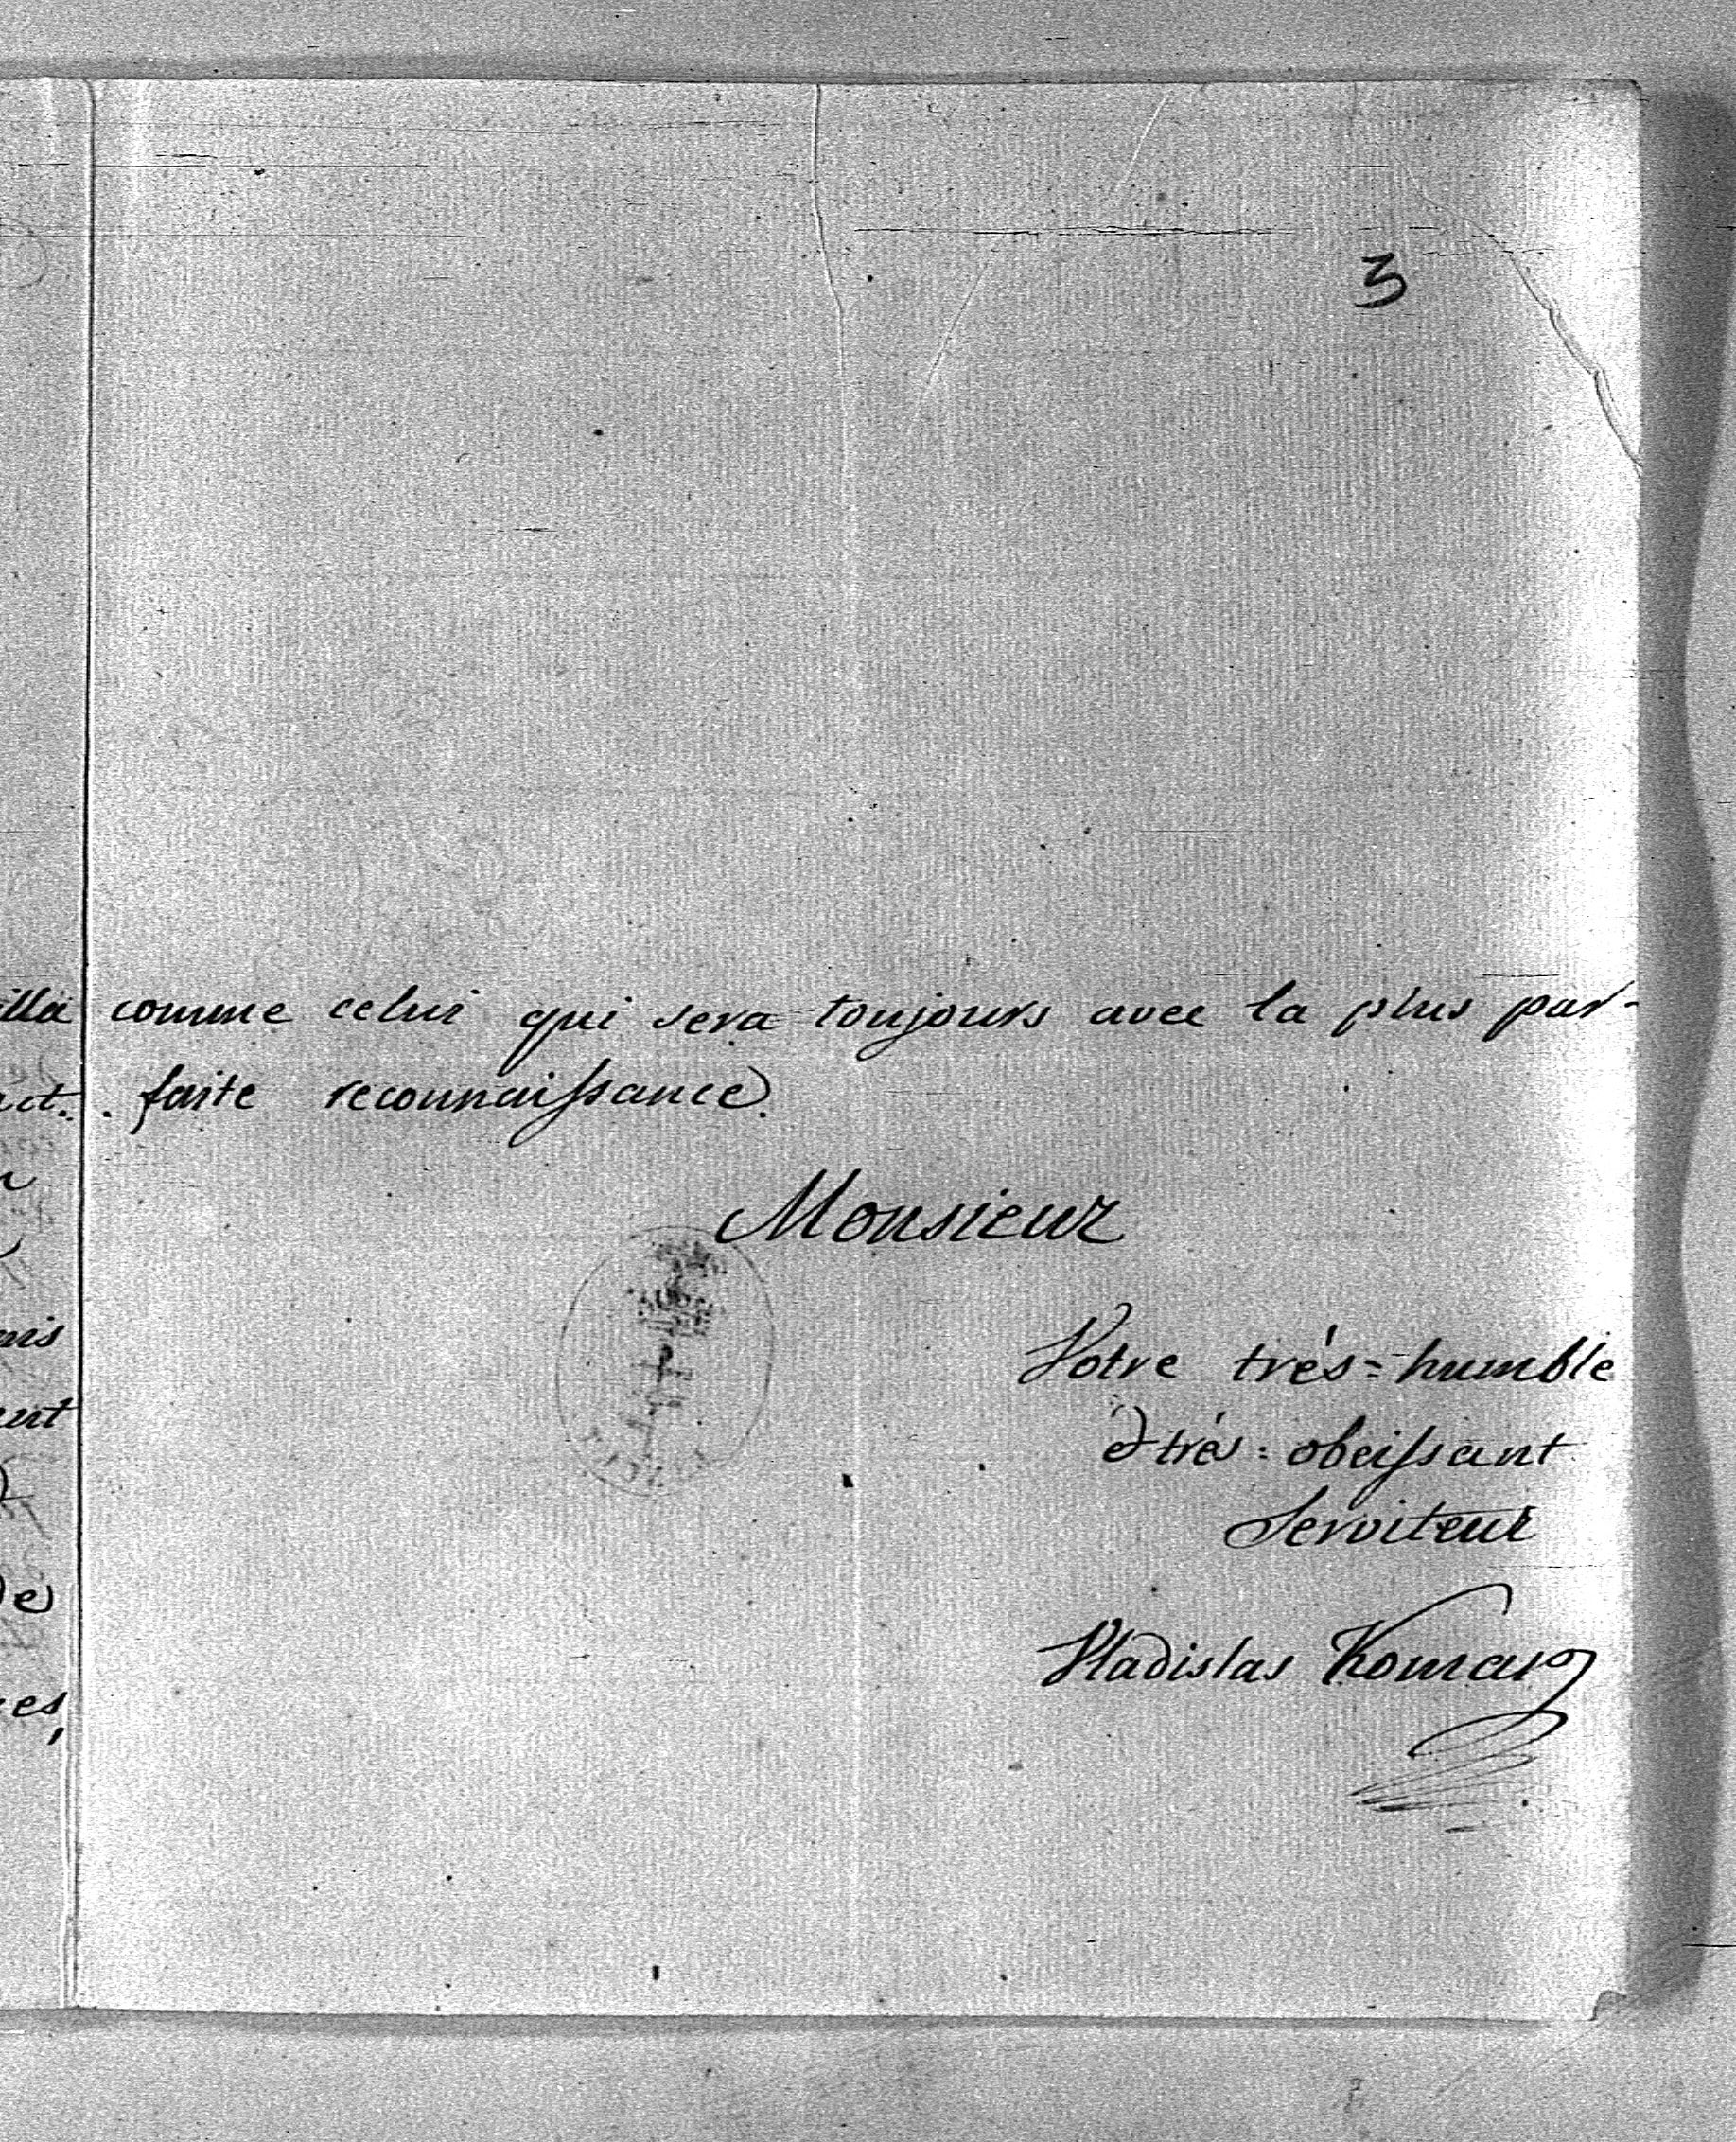 3
comme celui qui sera toujours avec la plus par-
faite reconnaissance.
Monsieur
Votre trés=humble
et trés=obeissant
Serviteur
Vladislas Komar